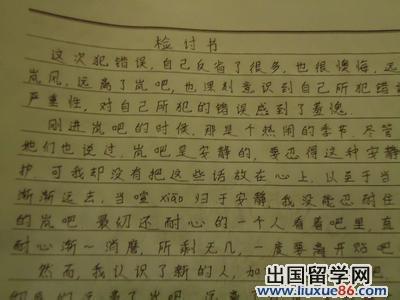 检付书
这次犯错误,自己反省了很多,也很懊悔,远
岚风,远离了岚吧,也深刻意识到自己所犯错误
严重性,对自己所犯的错误感到了羞愧
刚进岚吧的时候,那是个热闹的季节.尽管
她们也说过,岚吧是安静的,要忍得这种安静
护,可我却没有把这些话放在心上,以至于当
渐渐远去,当喧xiāo归于安静,我没能忍耐住
的岚吧.最初还耐心的一个人看着吧里,直
耐心渐一消磨,所剩无几,一度要离开贴吧
然而,我认识了新的人,加
的远离了岚吧,远离
出国留学网
www.liuxue86.com